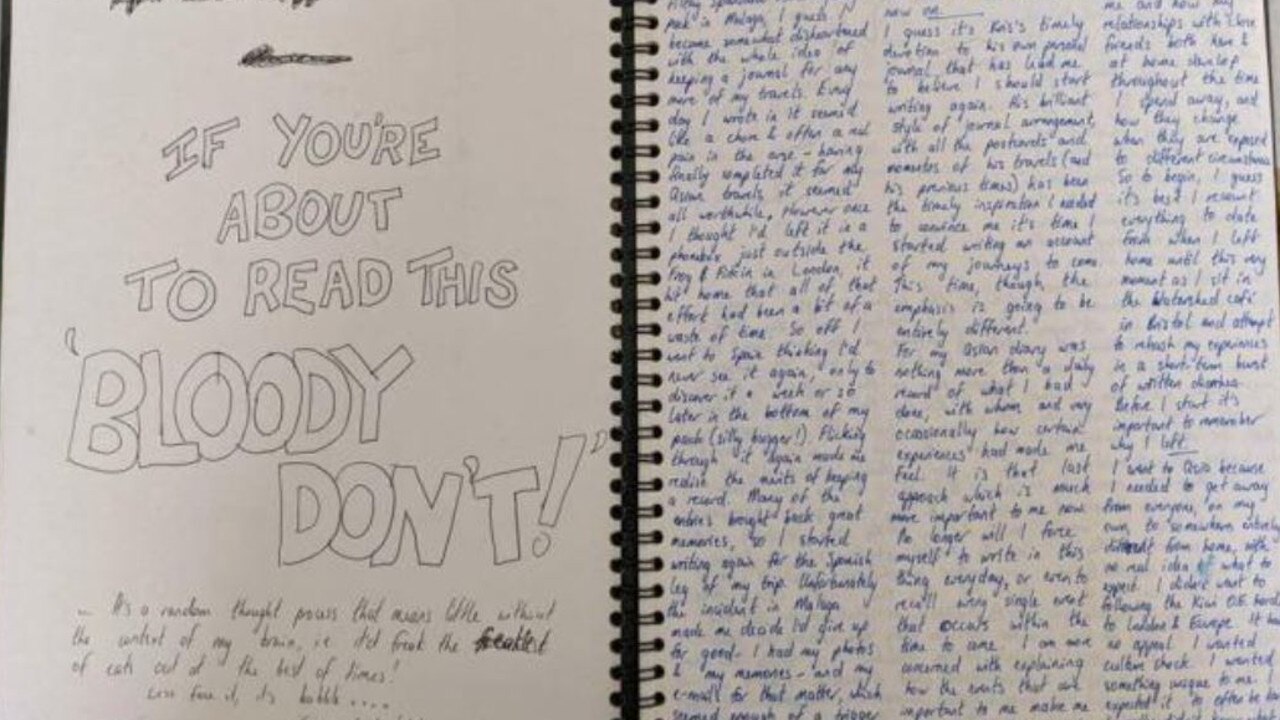 IF YOU'RE
ABOUT
TO READ THIS
'BLOODY
DON'T!'
... It's a random thought process that means little without
the context of my brain, i.e it'd freak the
of cats out at the best of times!
Less face it, it's babble ....
in Malaga, I guess I
become somewhat disheartened
with the whole idea of
keeping a journal for any
more of my travels. Every
day I wrote in it seemed
like a chore & often a real
pain in the arse - having
finally completed it for my
Asian travels, it seemed
all worthwhile. However once
I thought I'd left it in a
phonebox just outside the
Frog & Firkin in London, it
hit home that all of that
effort had been a bit of a
waste of time. So off I
went to Spain thinking I'd
never see it again, only to
discover it a week or so
later in the bottom of my
pack (silly bugger!). Flicking
through it again made me
realise the merits of keeping
a record. Many of the
entries brought back great
memories, so I started
writing again for the Spanish
leg of my trip. Unfortunately
the incident in Malaga
made me decide I'd give up
for good - I had my photos
& my memories - and my
e-mails for that matter, which
seemed enough of a trigger
now on.
I guess it's Kris's timely
devotion to his own personal
journal, that has lead me
to believe I should start
writing again. His brilliant
style of journal arrangement,
with all the postcards and
momentos of his travels (and
his previous times) has been
the timely inspiration I needed
to convince me it's time I
started writing an account
of my journeys to come.
This time, though, the
emphasis is going to be
entirely different.
For my Asian diary was
nothing more than a daily
record of what I had
done, with whom and very
occasionally how certain
experiences had made me
feel. It is that last
approach which is much
more important to me now.
No longer will I force
myself to write in this
thing everyday, or even to
recall every single event
that occurs within the
time to come. I am more
concerned with explaining
how the events that are
important to me make me
me and how my
relationships with close
friends both here &
at home develop
throughout the time
I spend away, and
how they change
when they are exposed
to different circumstances
So to begin, I guess
it's best I recount
everything to date
from when I left
home until this very
moment as I sit in
the Watershed café
in Bristol and attempt
to rehash my experiences
in a short-term burst
of written diarrhea.
Before I start it's
important to remember
why I left.
I went to Asia because
I needed to get away
from everyone, on my
own, to somewhere entirely
different from home, with
no real idea of what to
expect. I didn't want to
following the Kiwi O.E. hordes
to London & Europe. It had
no appeal. I wanted
culture shock. I wanted
something unique to me. I
expected it to often be